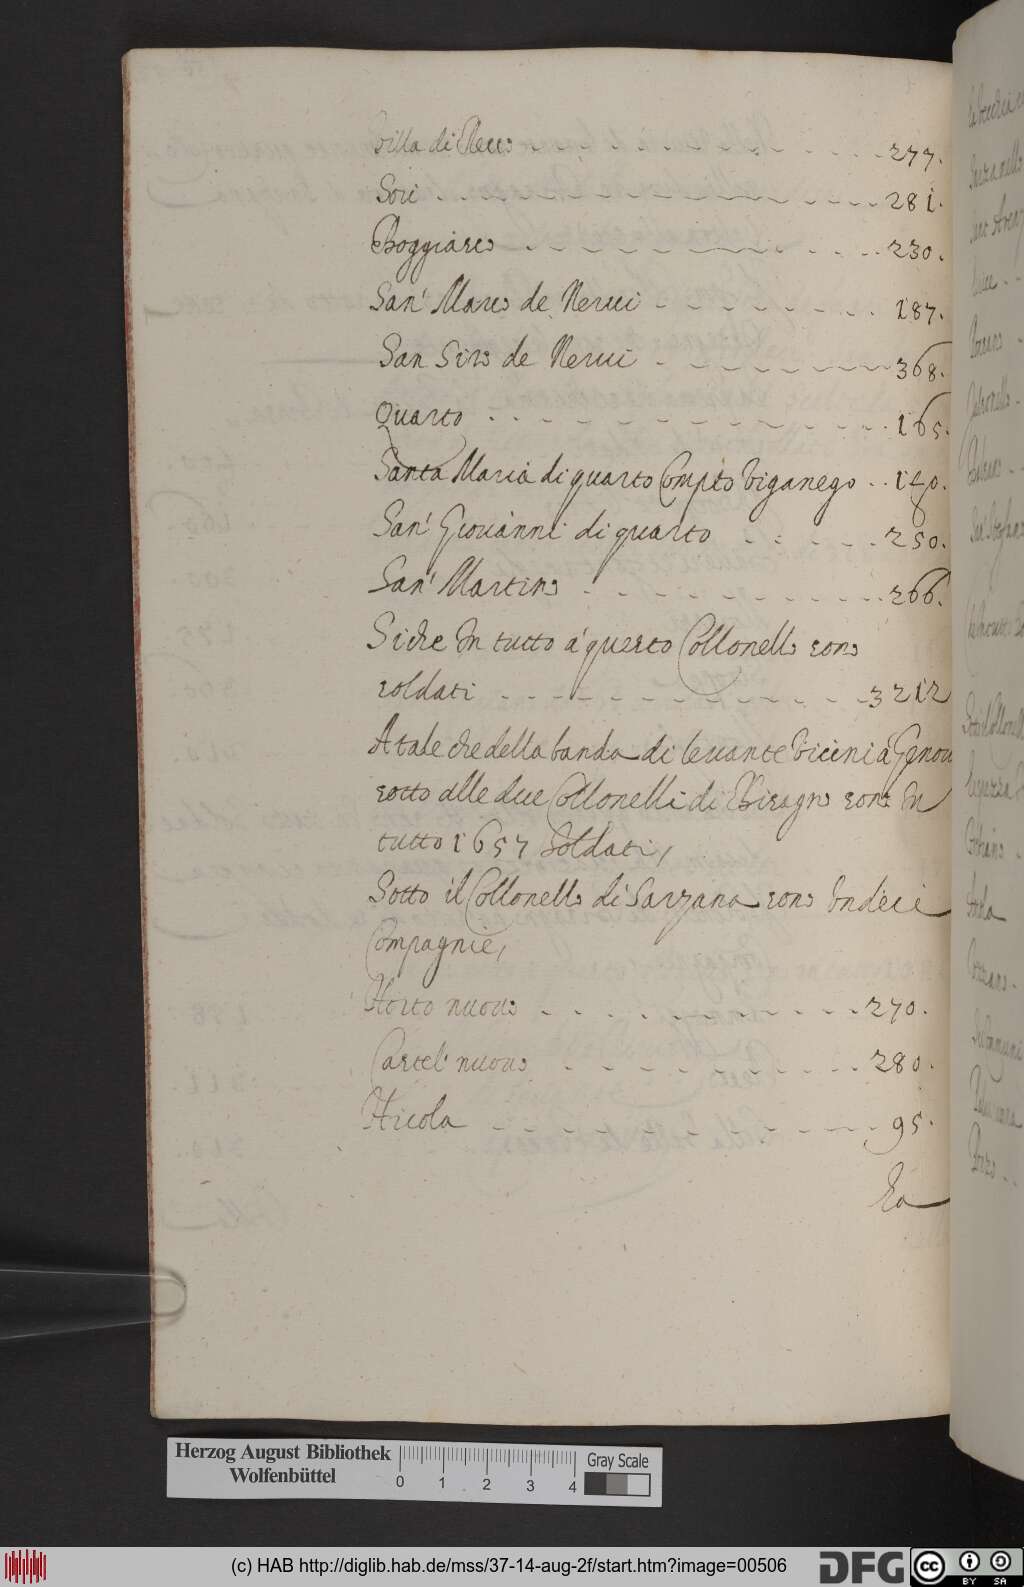 Villa di Recco 277.
Sori 281.
Boggiasco 230.
San' Marco de Nerui 187.
San Siro de Nerui 368.
Quarto 165.
Santa Maria di quarto Compto biganego 140.
San' Giouanni di quarto 250.
San' Martino 266.
Siche In tutto a' questo Collonello sono
soldati 3212
A tale che della banda di leuante Vicini á Genou
sotto alle due Collonelli di Bisagno sono In
tutto 1657 Soldati,
Sotto il Collonello di Sarzana sono Vndeci
Compagnie,
Horto nuouo 270.
Castel' nuouo 280.
Nicola 95.
La
Herzog August Bibliothek
Wolfenbüttel
0 1 2 3 4
Gray Scale
(c) HAB http://diglib.hab.de/mss/37-14-aug-2f/start.htm?image=00506
DFG
cc BY SA